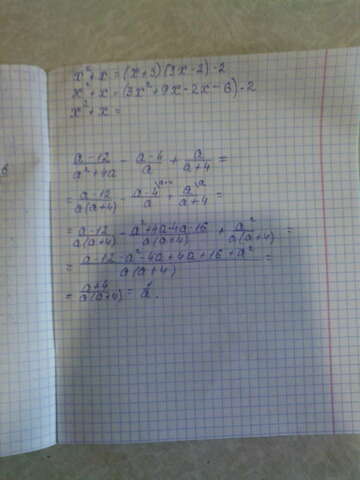 x²+x = (x+3)(3x-2)-2
x²+x = (3x²+9x-2x-6)-2
x²+x =
(a-12)/(a²+4a) - (a-4)/a + a/(a+4) =
= (a-12)/(a(a+4)) - (a-4)/a + a/(a+4) =
= (a-12)/(a(a+4)) - (a²+4a-4a-16)/(a(a+4)) + a²/(a(a+4)) =
= (a-12-a²-4a+4a+16+a²)/(a(a+4)) =
= (a+4)/(a(a+4)) = 1/a.